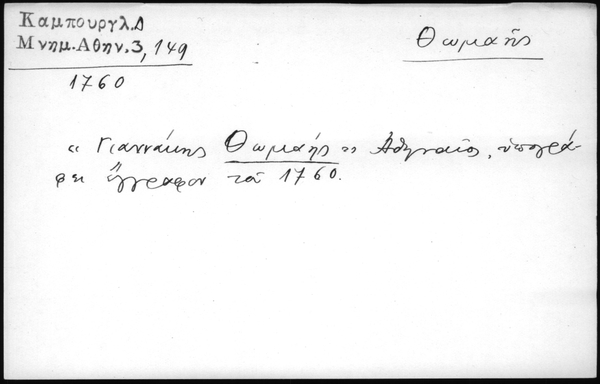 Καμπουργλ.Δ
Μνημ.Αθην.3,149
Θωμαής
1760
« Γιαννάκης Θωμαής » Αθηναίος, υπογρά-
φει έγγραφον τοῦ 1760.